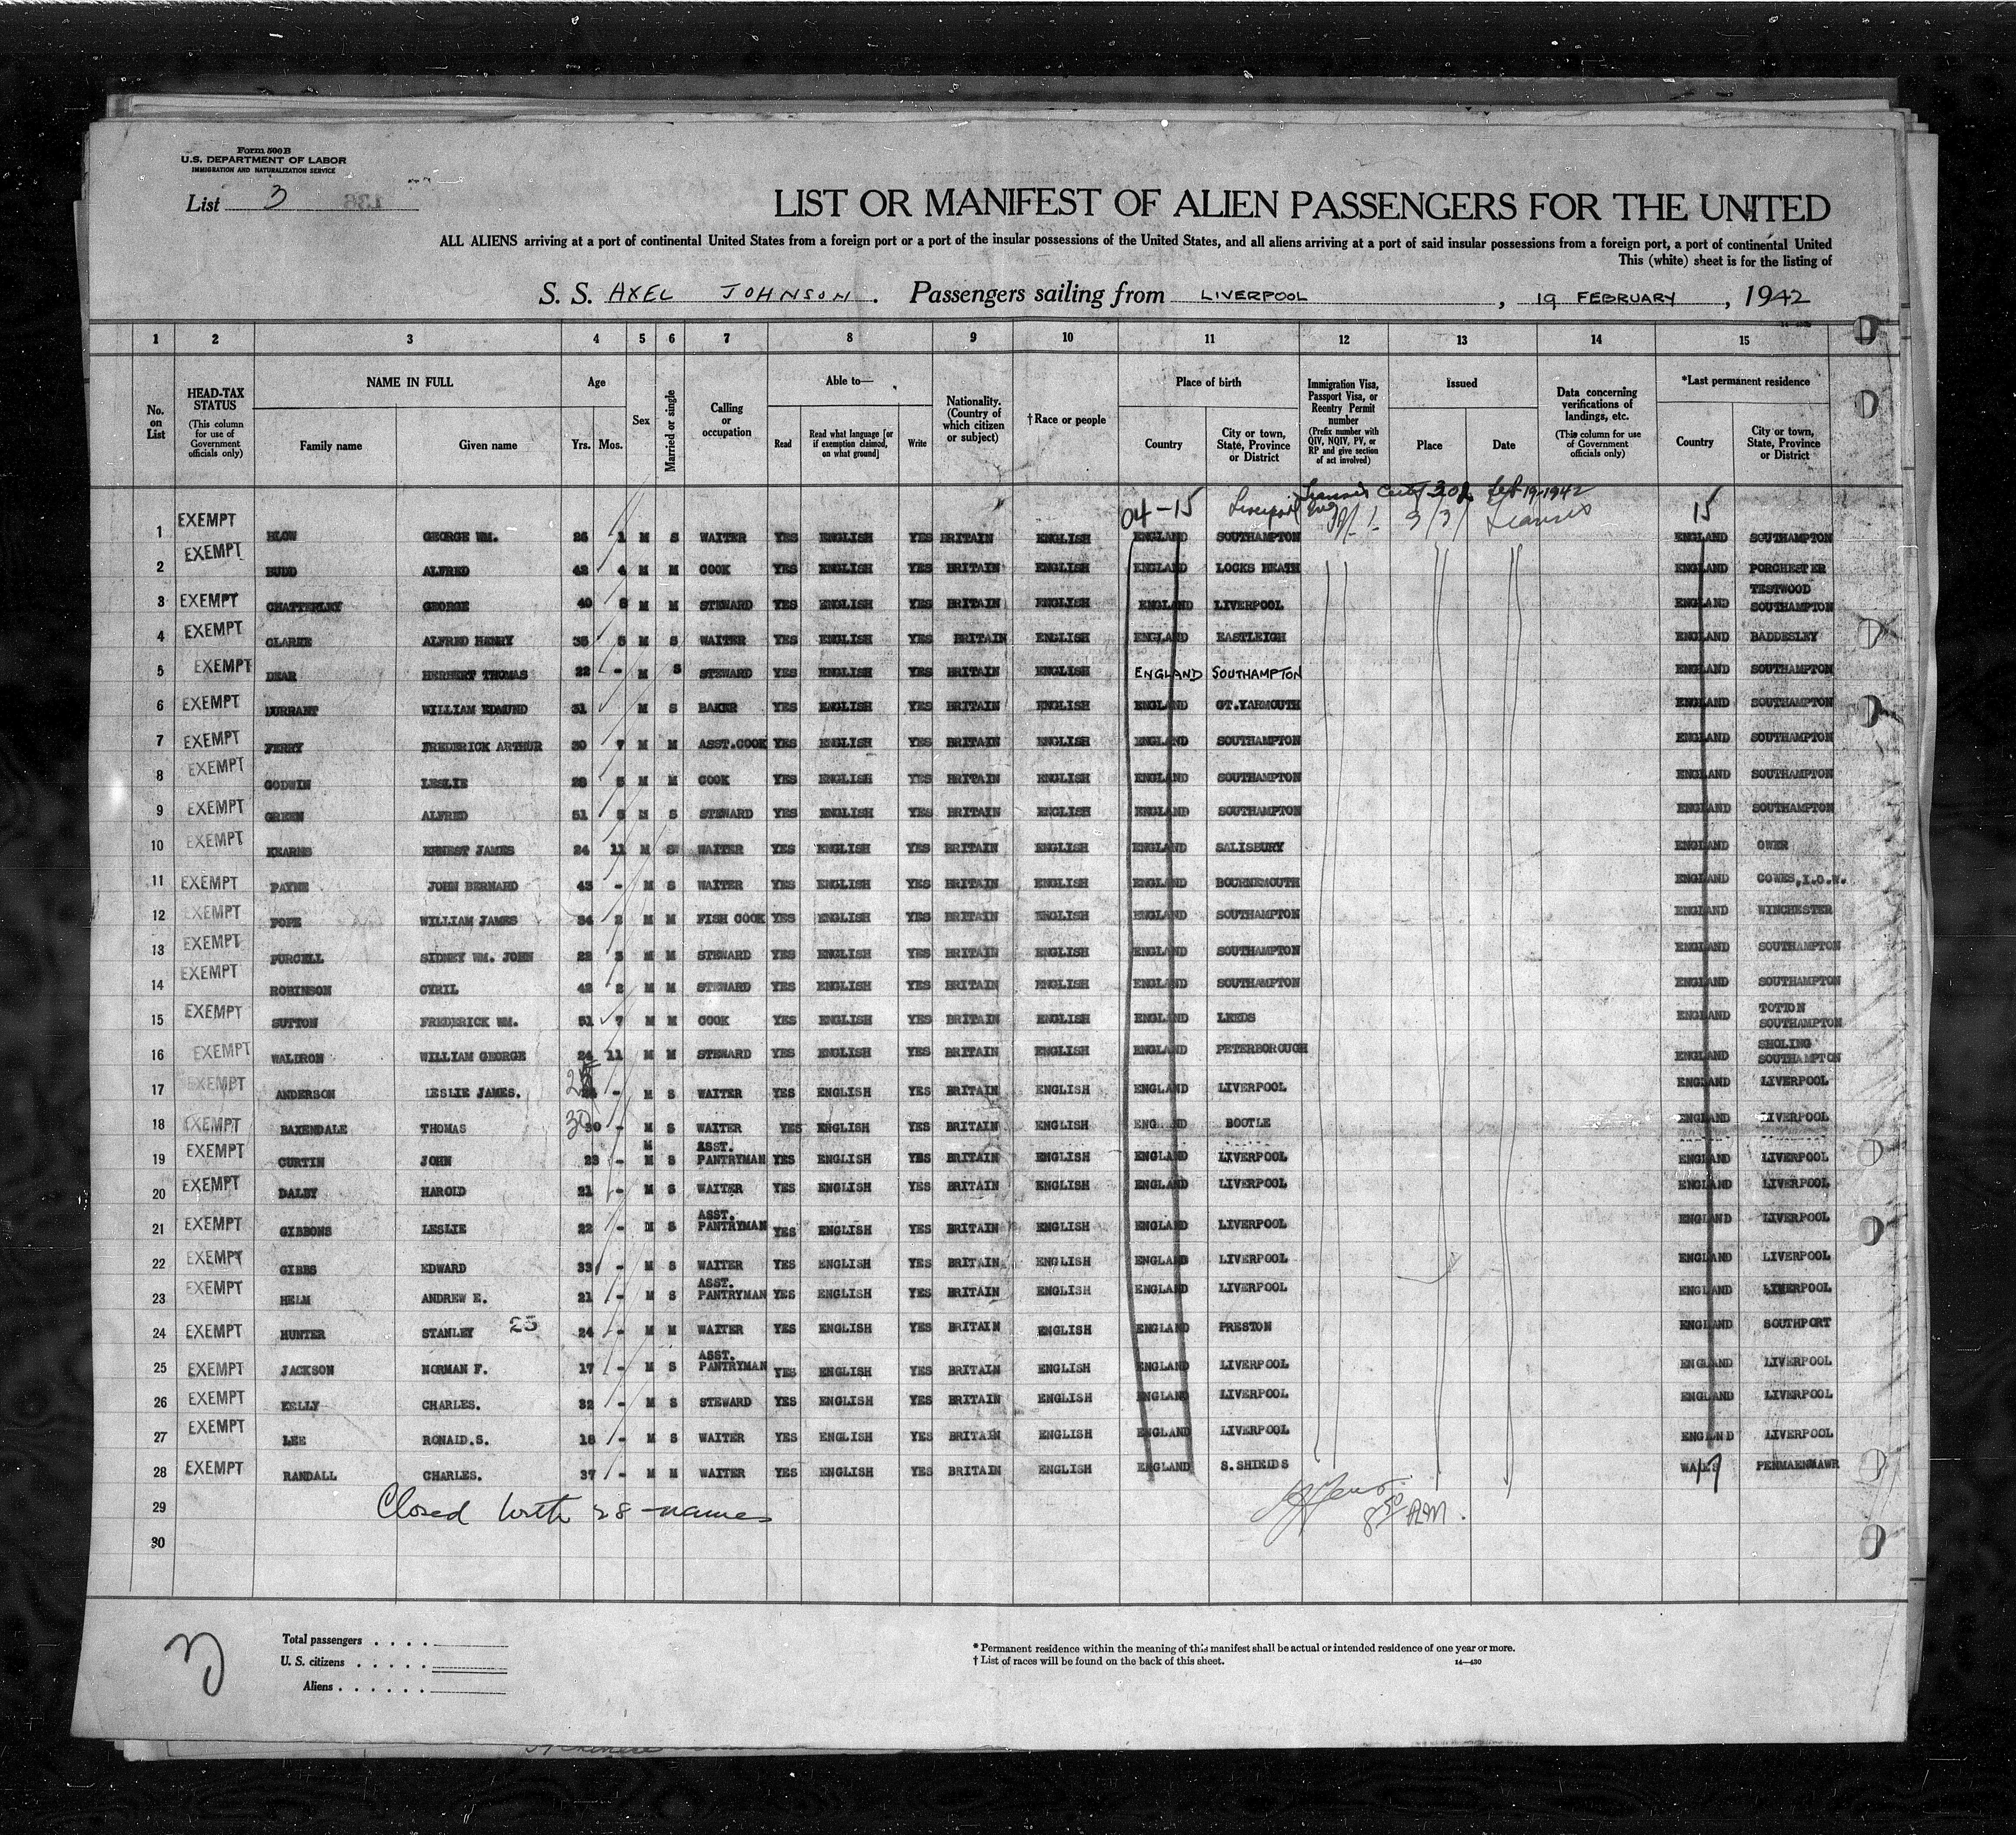 Form 500B
U.S. DEPARTMENT OF LABOR
IMMIGRATION AND NATURALIZATION SERVICE
List 3
LIST OR MANIFEST OF ALIEN PASSENGERS FOR THE UNITED
ALL ALIENS arriving at a port of continental United States from a foreign port or a port of the insular possessions of the United States, and all aliens arriving at a port of said insular possessions from a foreign port, a port of continental United
This (white) sheet is for the listing of
S. S. AXEL JOHNSON. Passengers sailing from LIVERPOOL, 19 FEBRUARY, 1942
1 2 3 4 5 6 7 8 9 10 11 12 13 14 15
No. on List
HEAD-TAX STATUS (This column for use of Government officials only)
NAME IN FULL Family name Given name
Age Yrs. Mos.
Sex
Married or single
Calling or occupation
Able to— Read Read what language [or if exemption claimed, on what ground] Write
Nationality. (Country of which citizen or subject)
† Race or people
Place of birth Country City or town, State, Province or District
Immigration Visa, Passport Visa, or Reentry Permit number (Prefix number with QIV, NQIV, PV, or RP and give section of act involved)
Issued Place Date
Data concerning verifications of landings, etc. (This column for use of Government officials only)
*Last permanent residence Country City or town, State, Province or District
04-15 Liverpool Eng 15
1 EXEMPT BLOW GEORGE WM. 26 1 M S WAITER YES ENGLISH YES BRITAIN ENGLISH ENGLAND SOUTHAMPTON ENGLAND SOUTHAMPTON
2 EXEMPT BUDD ALFRED 42 4 M M COOK YES ENGLISH YES BRITAIN ENGLISH ENGLAND LOCKS HEATH ENGLAND PORCHESTER
3 EXEMPT CHATTERLEY GEORGE 40 8 M M STEWARD YES ENGLISH YES BRITAIN ENGLISH ENGLAND LIVERPOOL ENGLAND TESTWOOD SOUTHAMPTON
4 EXEMPT CLARKE ALFRED HENRY 35 5 M S WAITER YES ENGLISH YES BRITAIN ENGLISH ENGLAND EASTLEIGH ENGLAND BADDESLEY
5 EXEMPT DEAR HERBERT THOMAS 22 - M S STEWARD YES ENGLISH YES BRITAIN ENGLISH ENGLAND SOUTHAMPTON ENGLAND SOUTHAMPTON
6 EXEMPT DURRANT WILLIAM EDMUND 31 M S BAKER YES ENGLISH YES BRITAIN ENGLISH ENGLAND GT.YARMOUTH ENGLAND SOUTHAMPTON
7 EXEMPT FERRY FREDERICK ARTHUR 30 7 M M ASST.COOK YES ENGLISH YES BRITAIN ENGLISH ENGLAND SOUTHAMPTON ENGLAND SOUTHAMPTON
8 EXEMPT GODWIN LESLIE 28 5 M M COOK YES ENGLISH YES BRITAIN ENGLISH ENGLAND SOUTHAMPTON ENGLAND SOUTHAMPTON
9 EXEMPT GREEN ALFRED 51 5 M S STEWARD YES ENGLISH YES BRITAIN ENGLISH ENGLAND SOUTHAMPTON ENGLAND SOUTHAMPTON
10 EXEMPT KEARNS ERNEST JAMES 24 11 M S WAITER YES ENGLISH YES BRITAIN ENGLISH ENGLAND SALISBURY ENGLAND OWER
11 EXEMPT PAYNE JOHN BERNARD 43 - M S WAITER YES ENGLISH YES BRITAIN ENGLISH ENGLAND BOURNEMOUTH ENGLAND COWES,I.O.W.
12 EXEMPT POPE WILLIAM JAMES 34 2 M M FISH COOK YES ENGLISH YES BRITAIN ENGLISH ENGLAND SOUTHAMPTON ENGLAND WINCHESTER
13 EXEMPT PURCELL SIDNEY WM. JOHN 22 3 M M STEWARD YES ENGLISH YES BRITAIN ENGLISH ENGLAND SOUTHAMPTON ENGLAND SOUTHAMPTON
14 EXEMPT ROBINSON CYRIL 42 2 M M STEWARD YES ENGLISH YES BRITAIN ENGLISH ENGLAND SOUTHAMPTON ENGLAND SOUTHAMPTON
15 EXEMPT SUTTON FREDERICK WM. 51 7 M M COOK YES ENGLISH YES BRITAIN ENGLISH ENGLAND LEEDS ENGLAND TOTTON SOUTHAMPTON
16 EXEMPT WALDRON WILLIAM GEORGE 24 11 M M STEWARD YES ENGLISH YES BRITAIN ENGLISH ENGLAND PETERBOROUGH ENGLAND SHOLING SOUTHAMPTON
17 EXEMPT ANDERSON LESLIE JAMES. - M S WAITER YES ENGLISH YES BRITAIN ENGLISH ENGLAND LIVERPOOL ENGLAND LIVERPOOL
18 EXEMPT BAXENDALE THOMAS 30 30 - M S WAITER YES ENGLISH YES BRITAIN ENGLISH ENGLAND BOOTLE ENGLAND LIVERPOOL
19 EXEMPT CURTIN JOHN 23 - M M S ASST. PANTRYMAN YES ENGLISH YES BRITAIN ENGLISH ENGLAND LIVERPOOL ENGLAND LIVERPOOL
20 EXEMPT DALBY HAROLD 21 - M S WAITER YES ENGLISH YES BRITAIN ENGLISH ENGLAND LIVERPOOL ENGLAND LIVERPOOL
21 EXEMPT GIBBONS LESLIE 22 - M S ASST. PANTRYMAN YES ENGLISH YES BRITAIN ENGLISH ENGLAND LIVERPOOL ENGLAND LIVERPOOL
22 EXEMPT GIBBS EDWARD 33 - M S WAITER YES ENGLISH YES BRITAIN ENGLISH ENGLAND LIVERPOOL ENGLAND LIVERPOOL
23 EXEMPT HELM ANDREW E. 21 - M S ASST. PANTRYMAN YES ENGLISH YES BRITAIN ENGLISH ENGLAND LIVERPOOL ENGLAND LIVERPOOL
24 EXEMPT HUNTER STANLEY 25 24 - M M WAITER YES ENGLISH YES BRITAIN ENGLISH ENGLAND PRESTON ENGLAND SOUTHPORT
25 EXEMPT JACKSON NORMAN F. 17 - M S ASST. PANTRYMAN YES ENGLISH YES BRITAIN ENGLISH ENGLAND LIVERPOOL ENGLAND LIVERPOOL
26 EXEMPT KELLY CHARLES. 32 - M S STEWARD YES ENGLISH YES BRITAIN ENGLISH ENGLAND LIVERPOOL ENGLAND LIVERPOOL
27 EXEMPT LEE RONALD.S. 18 - M S WAITER YES ENGLISH YES BRITAIN ENGLISH ENGLAND LIVERPOOL ENGLAND LIVERPOOL
28 EXEMPT RANDALL CHARLES. 37 - M M WAITER YES ENGLISH YES BRITAIN ENGLISH ENGLAND S.SHIELDS WALES PENMAENMAWR
29 Closed with 28 names
30
Total passengers . . . .
U.S. citizens . . . . .
Aliens . . . . . .
* Permanent residence within the meaning of this manifest shall be actual or intended residence of one year or more.
† List of races will be found on the back of this sheet.
14—430